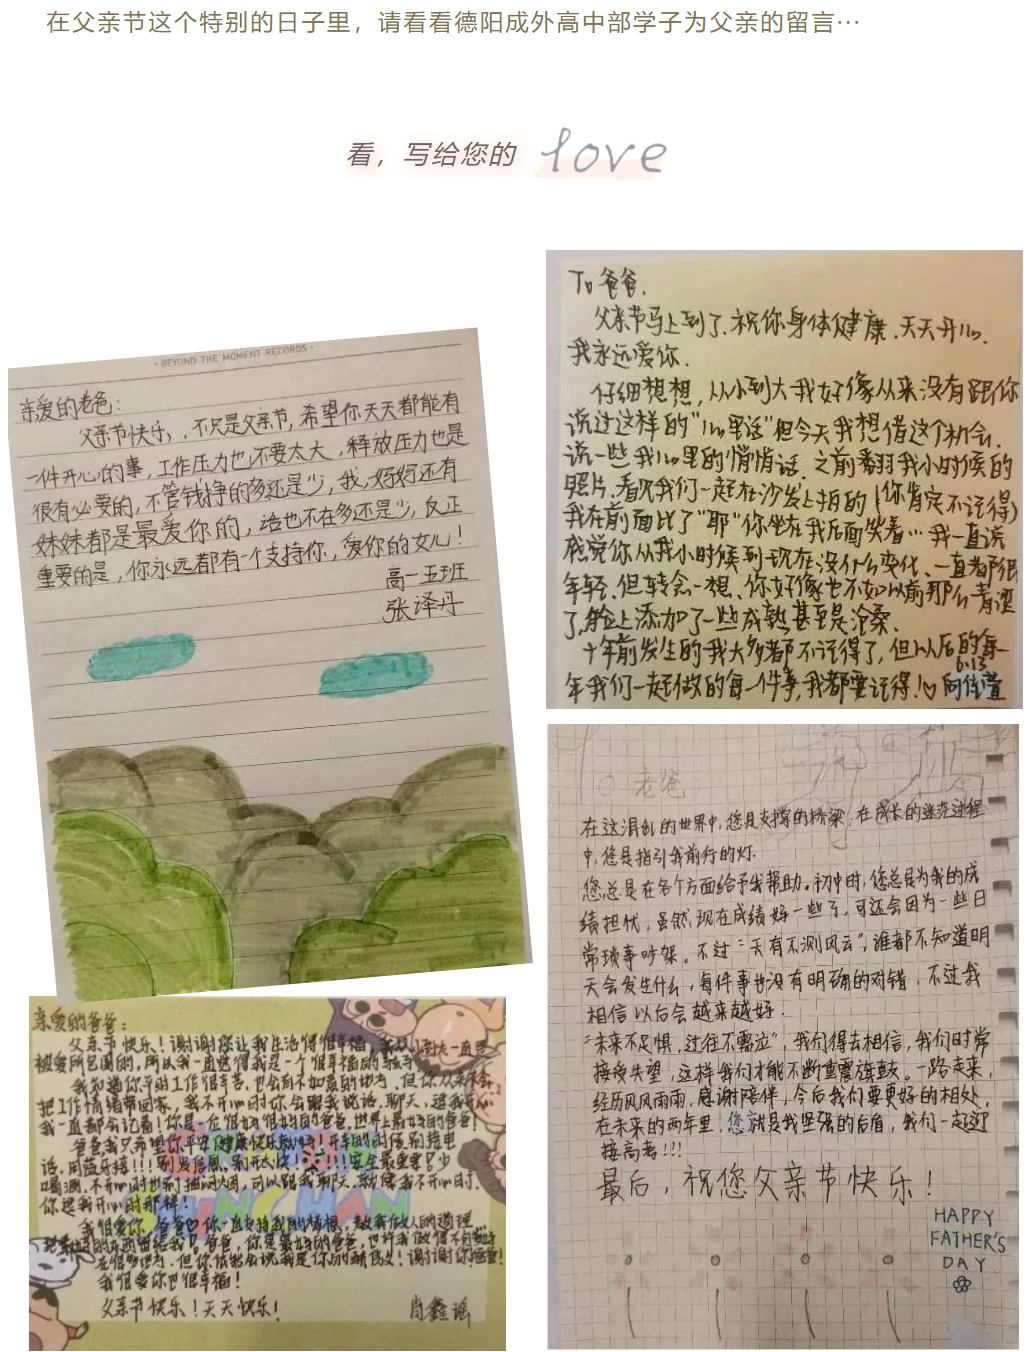 在父亲节这个特别的日子里，请看看德阳成外高中部学子为父亲的留言…
看，写给您的 love
- BEYOND THE MOMENT RECORDS -
亲爱的老爸：
父亲节快乐，不只是父亲节，希望你天天都能有
一件开心的事，工作压力也不要太大，释放压力也是
很有必要的，不管钱挣的多还是少，我，妈妈还有
妹妹都是最爱你的，话也不在多还是少，反正
重要的是，你永远都有一个支持你，爱你的女儿！
高一五班
张译丹
To 爸爸.
父亲节马上到了.祝你身体健康.天天开心.
我永远爱你.
仔细想想，从小到大我好像从来没有跟你
说过这样的"心里话"但今天我想借这个机会.
说一些我心里的悄悄话.之前翻我小时候的
照片.看见我们一起在沙发上拍的(你肯定不记得)
我在前面比了"耶"你坐在我后面笑着…我一直说
感觉你从我小时候到现在没什么变化、一直都很
年轻.但转念一想、你好像也不如以前那么青涩
了,脸上添加了一些成熟甚至是沧桑.
十年前发生的我大多都不记得了,但以后的每一
6.13
年我们一起做的每一件事,我都要记得!♡ 向佳萱
老爸
在这混乱的世界中,您是支撑的桥梁,在成长的迷茫过程
中,您是指引我前行的灯.
您总是在各个方面给予我帮助。初中时,您总是为我的成
绩担忧，虽然现在成绩好一些了,可还会因为一些日
常琐事吵架。不过"天有不测风云",谁都不知道明
天会发生什么，每件事也没有明确的对错，不过我
相信以后会越来越好.
"未来不足惧,过往不需泣"，我们得去相信，我们时常
接受失望，这样我们才能不断重震旗鼓。一路走来,
经历风风雨雨,感谢陪伴，今后我们要更好的相处,
在未来的两年里,您就是我坚强的后盾，我们一起迎
接高考!!!
最后，祝您父亲节快乐！
HAPPY
FATHER'S
DAY
亲爱的爸爸：
父亲节快乐！谢谢您让我生活得很幸福，我从小到大一直
被爱所包围的,所以我一直觉得我是一个很幸福的孩子
我知道你平时工作很辛苦,也会有不如意的地方,但你从来不会
把工作情绪带回家，我不开心时你会跟我说话、聊天，逗我开心
我一直都会记着!你是一位很好很好的爸爸,世界上最好的爸爸!
爸爸,我只希望你平安健康快乐就好!开车的时候,别接电
话,用蓝牙接!!!别发信息,别开太快!!!!安全最重要!少
喝酒,不开心时也别抽闷烟,可以跟我聊天,就像我不开心时,
你逗我开心时那样!
我很爱你,爸爸♡你一直支持我的梦想,教我做人的道理
把最好的东西留给我,爸爸,你是最好的爸爸,也许我做得不够好
在很多地方,但你依然会说我是你的骄傲!谢谢你!爸爸!
我很爱你也很幸福!
父亲节快乐!天天快乐! 肖鑫瑶